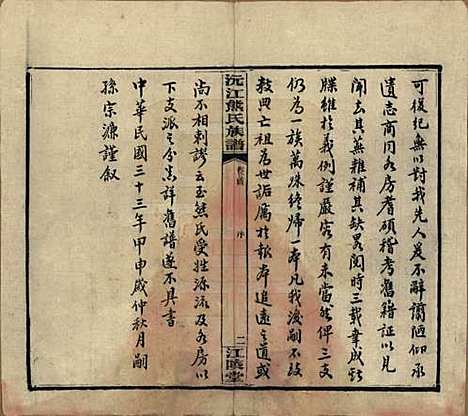 可復紀無以對我先人爰不辭謭陋仰承
遺志商同各房耆碩稽考舊籍証以見
聞去其蕪雜補其缺畧閱時三載韋成點
雖於義例謹嚴容有未當然俾三支
仍為一族萬殊終歸一本凡我後嗣不致
数典亡祖為世詬厲於報本追遠之道或
沅江熊氏族譜
卷首
序
二
江陵堂
尚不相剌謬云至熊氏受姓源流及各房以
下支派之分具詳舊譜遂不具書
中華民國三十三年甲申歲仲秋月嗣
孫宗濂謹叙